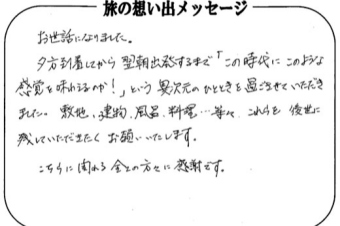 旅の想い出メッセージ
お世話になりました。
夕方到着してから翌朝出発するまで「この時代にこのような
感覚を味わえるのか！」という異次元のひとときを過ごさせていただき
ました。敷地、建物、風呂、料理…等々、これらを後世に
残していただきたくお願いいたします。
こちらに関わる全ての方々に感謝です。